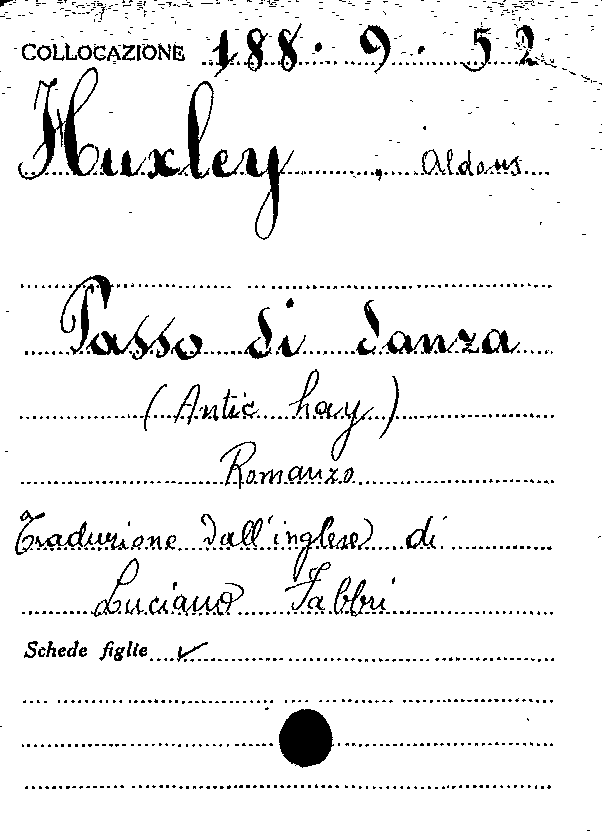 COLLOCAZIONE 188. 9. 52
Huxley, Aldous
Passo di danza
(Antic hay)
Romanzo
Traduzione dall'inglese di
Luciano Fabbri
Schede figlie ✓